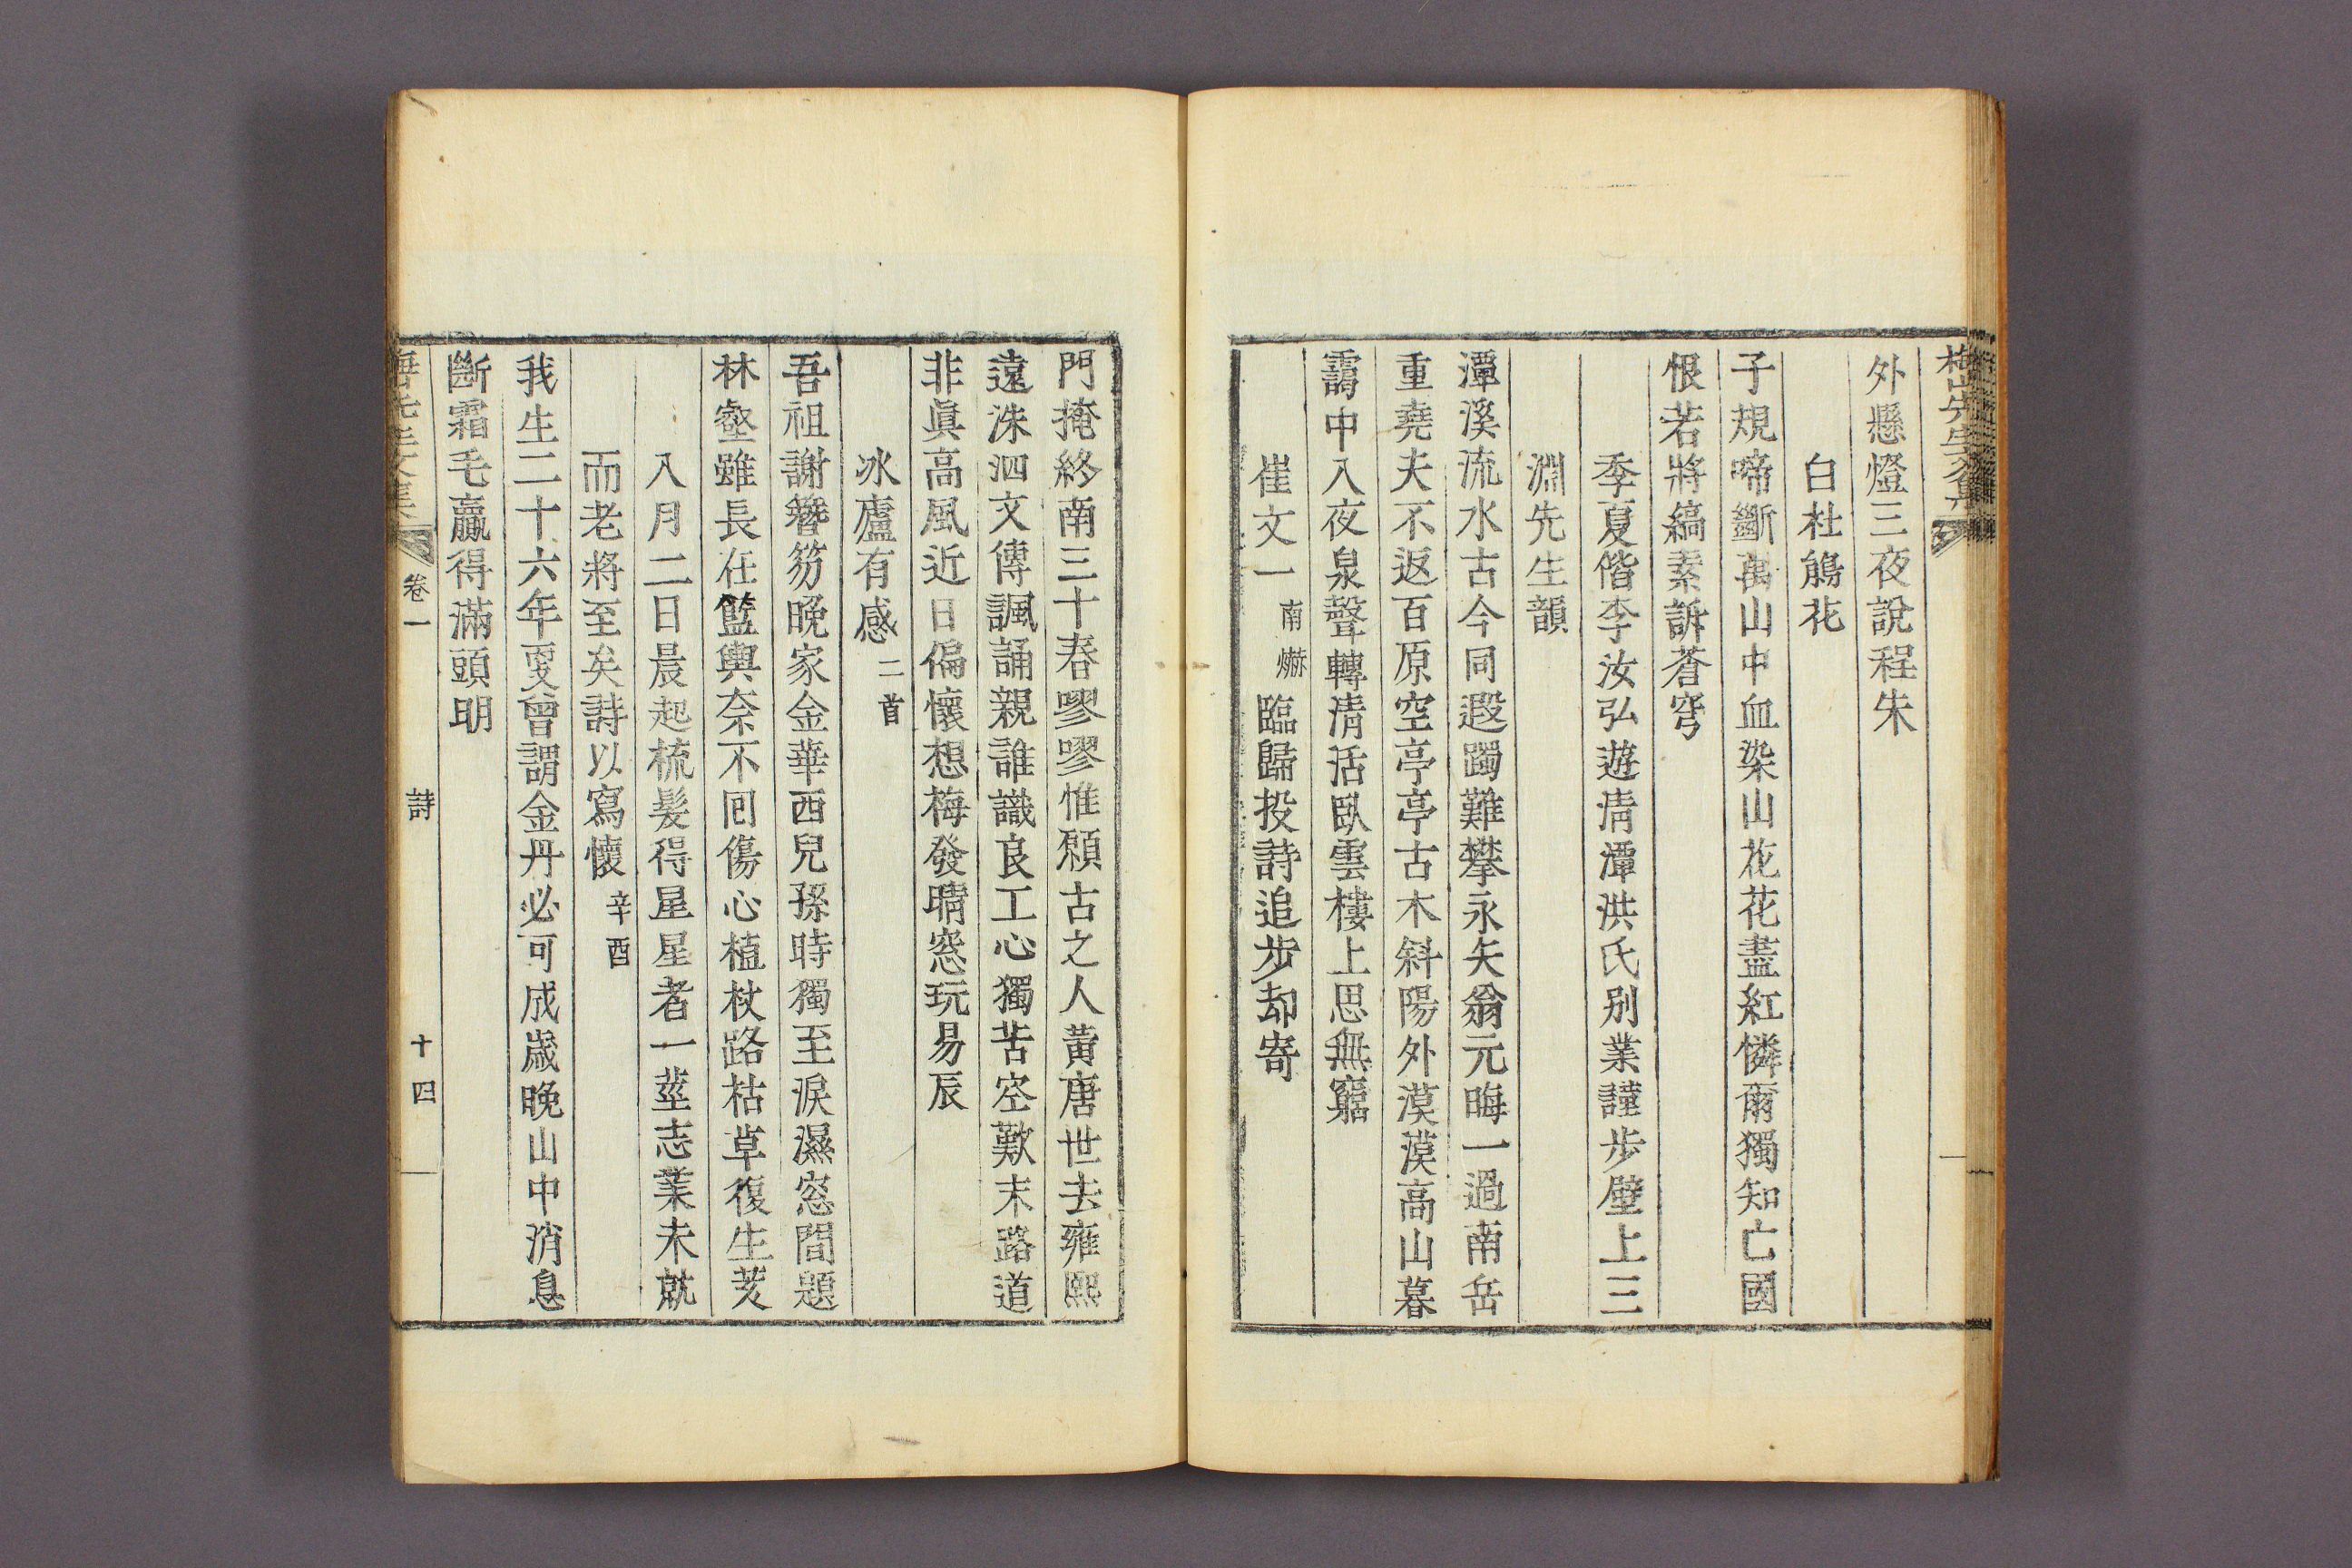 梅山先生文集
外懸燈三夜說程朱
白杜鵑花
子規啼斷萬山中血染山花花盡紅憐爾獨知亡國
恨若將縞素訴蒼穹
季夏偕李汝弘遊淸潭洪氏別業謹步壁上三
淵先生韻
潭溪流水古今同遐躅難攀永矢翁元晦一過南岳
重堯夫不返百原空亭亭古木斜陽外漠漠高山暮
靄中入夜泉聲轉淸活臥雲樓上思無窮
崔文一南爀臨歸投詩追步却寄
門掩終南三十春嘐嘐惟願古之人黃唐世去雍熙
遠洙泗文傳諷誦親誰識良工心獨苦空歎末路道
非眞高風近日偏懷想梅發晴窓玩易辰
冰廬有感二首
吾祖謝簪笏晚家金華西兒孫時獨至淚濕窓間題
林壑雖長在籃輿奈不回傷心植杖路枯草復生荄
八月二日晨起梳髮得星星者一莖志業未就
而老將至矣詩以寫懷辛酉
我生二十六年耰曾謂金丹必可成歲晚山中消息
斷霜毛贏得滿頭明
梅山先生文集 卷一 詩 十四